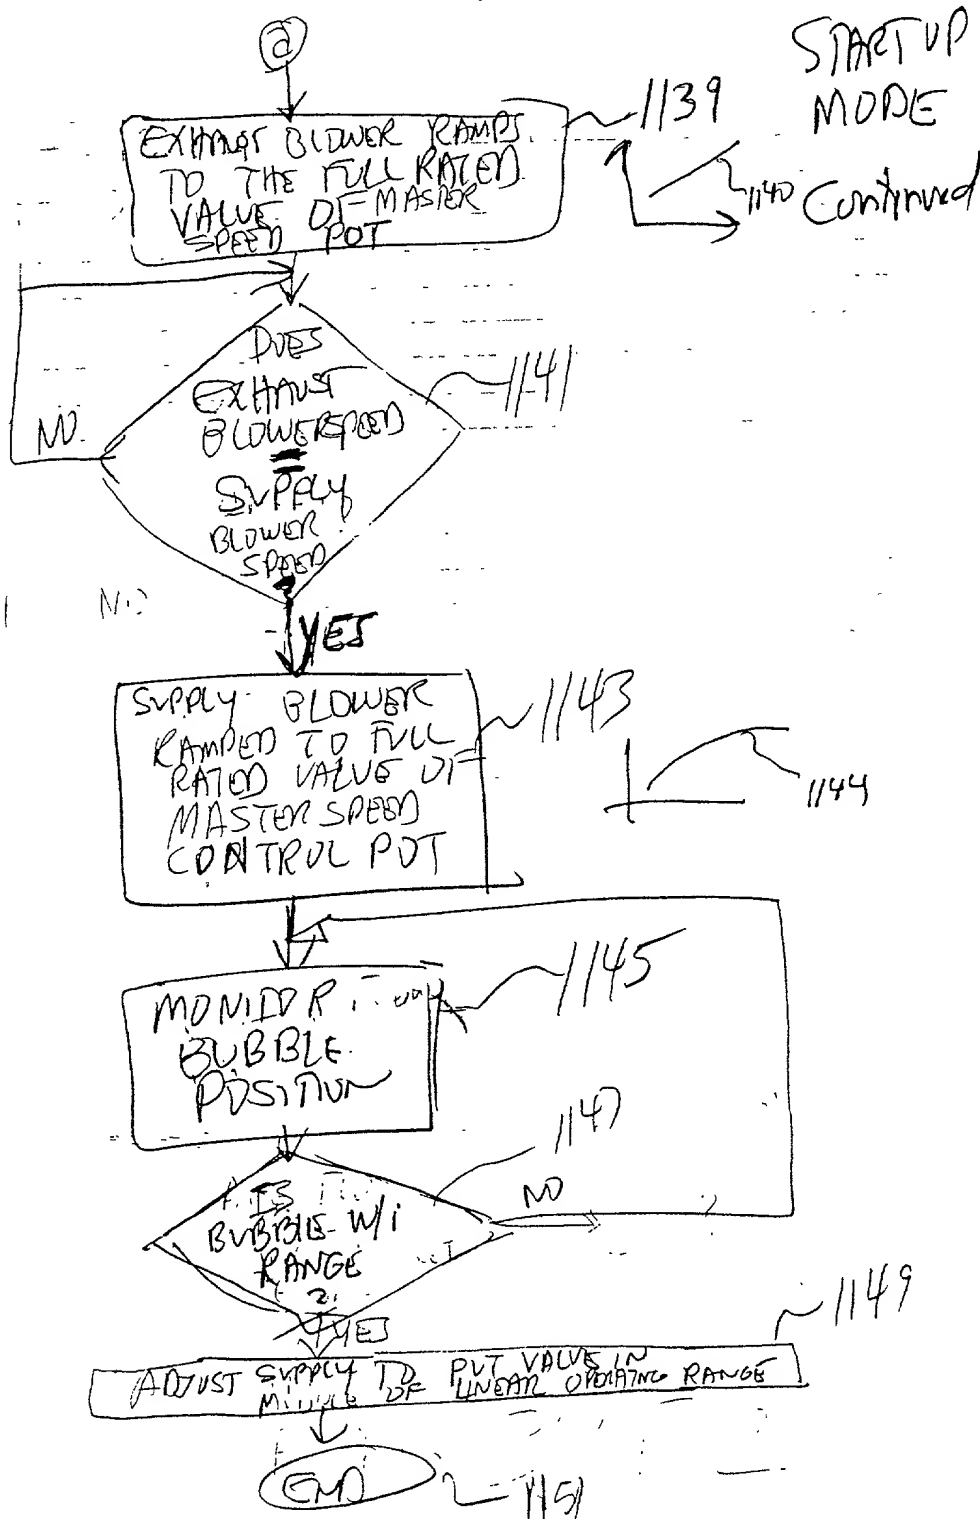 a
STARTUP
MODE
Continued
1139
1140
EXHAUST BLOWER RAMPS
TO THE FULL RATED
VALUE OF MASTER
SPEED POT
DOES
EXHAUST
BLOWER SPEED
=
SUPPLY
BLOWER
SPEED
?
1141
NO
YES
SUPPLY BLOWER
RAMPED TO FULL
RATED VALUE OF
MASTER SPEED
CONTROL POT
1143
1144
MONITOR
BUBBLE
POSITION
1145
IS
BUBBLE W/i
RANGE
?
1147
NO
YES
ADJUST SUPPLY TO PUT VALUE IN
MIDDLE OF LINEAR OPERATING RANGE
1149
END
1151